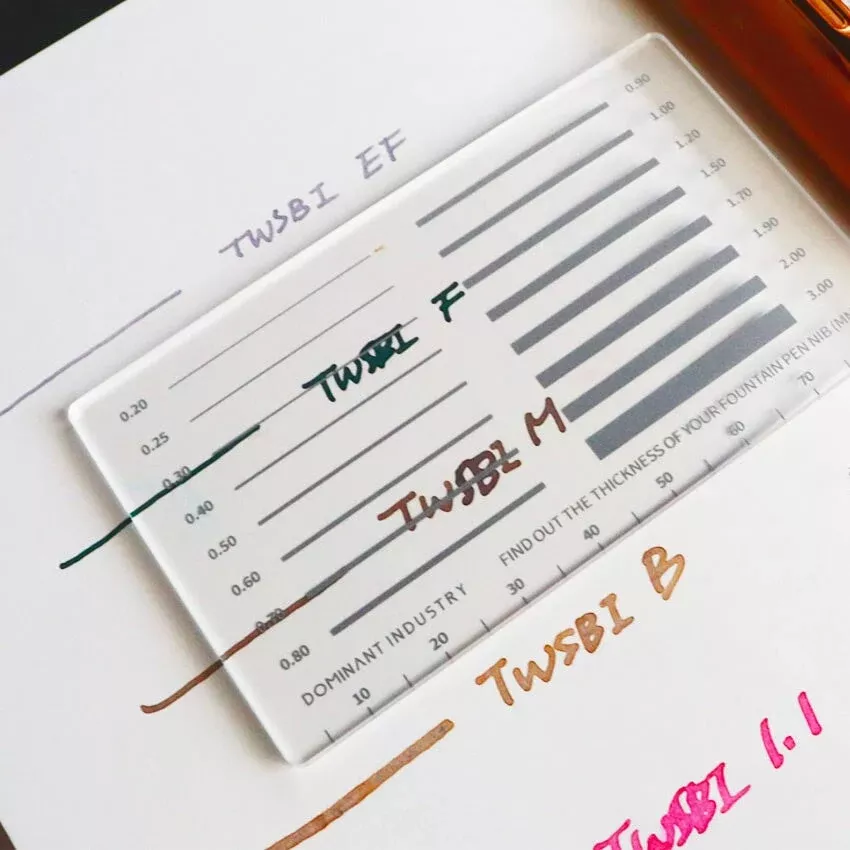 TWSBI EF
TWSBI F
TWSBI M
TWSBI B
TWSBI 1.1
0.20
0.25
0.30
0.40
0.50
0.60
0.70
0.80
0.90
1.00
1.20
1.50
1.70
1.90
2.00
3.00
DOMINANT INDUSTRY
FIND OUT THE THICKNESS OF YOUR FOUNTAIN PEN NIB
10 20 30 40 50 60 70